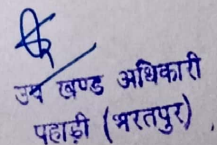 उप खण्ड अधिकारी
पहाड़ी (भरतपुर)